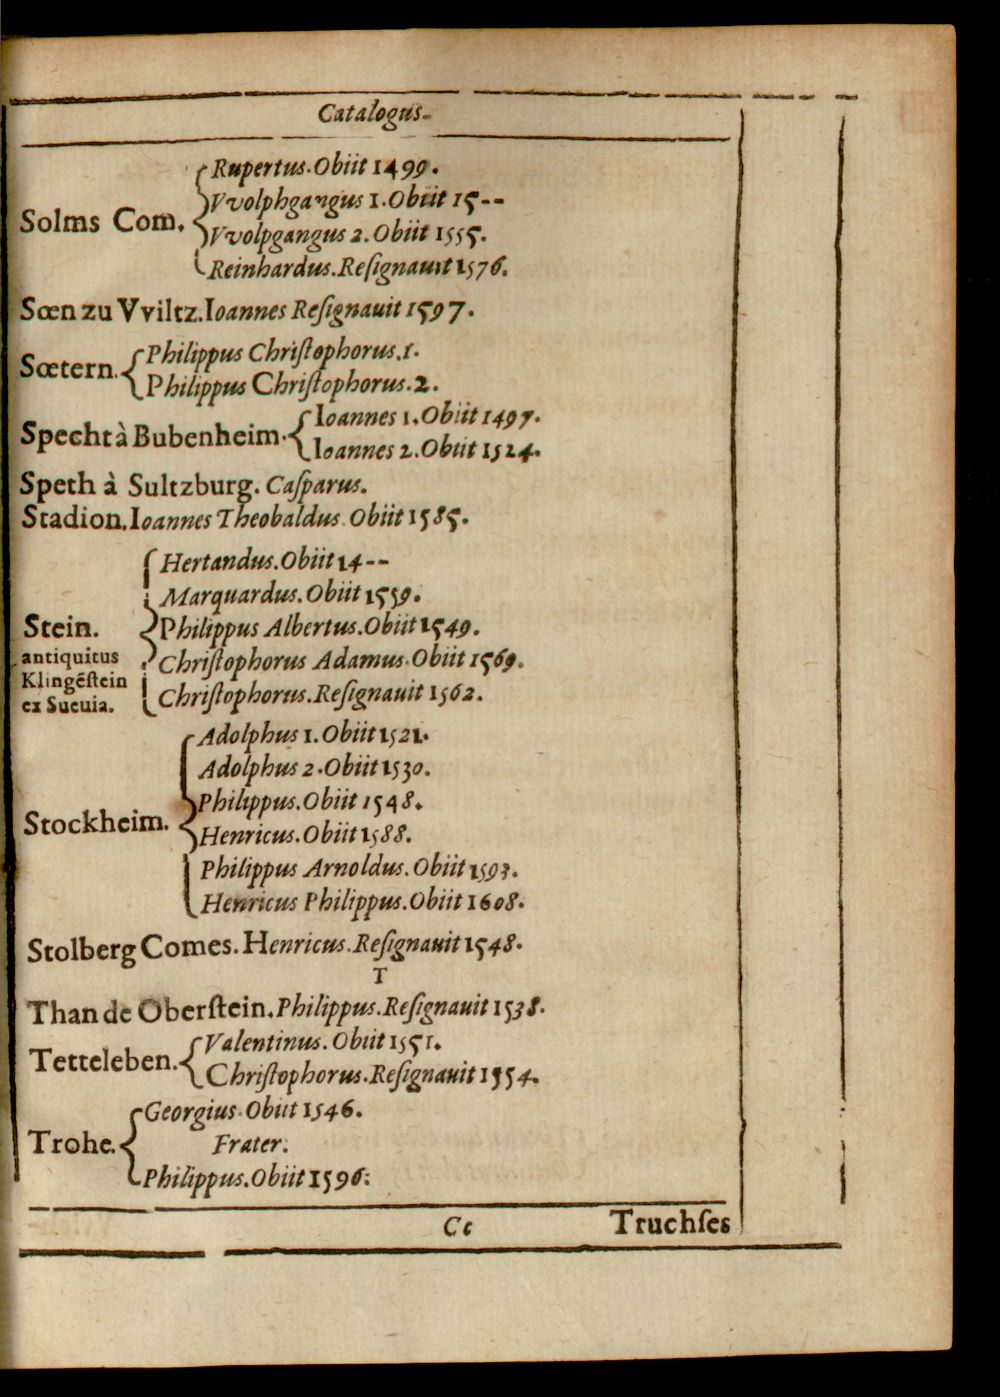 Catalogus.
Rupertus. Obiit 1499.
Vvolphgangus 1. Obiit 15--
Solms Com.
Vvolpgangus 2. Obiit 1555.
Reinhardus. Reſignauit 1576.
Sœn zu Vviltz. Ioannes Reſignauit 1597.
Philippus Chriſtophorus. 1.
Sœtern.
Philippus Chriſtophorus. 2.
Ioannes 1. Obiit 1497.
Specht à Bubenheim.
Ioannes 2. Obiit 1524.
Speth à Sultzburg. Caſparus.
Stadion. Ioannes Theobaldus. Obiit 1585.
Hertandus. Obiit 14--
Marquardus. Obiit 1559.
Stein.
Philippus Albertus. Obiit 1549.
antiquitus
Chriſtophorus Adamus. Obiit 1569.
Klingēſtein
Chriſtophorus. Reſignauit 1562.
ex Sueuia.
Adolphus 1. Obiit 1521.
Adolphus 2. Obiit 1530.
Philippus. Obiit 1548.
Stockheim.
Henricus. Obiit 1588.
Philippus Arnoldus. Obiit 1593.
Henricus Philippus. Obiit 1608.
Stolberg Comes. Henricus. Reſignauit 1548.
T
Than de Oberſtein. Philippus. Reſignauit 1538.
Valentinus. Obiit 1551.
Tetteleben.
Chriſtophorus. Reſignauit 1554.
Georgius. Obiit 1546.
Trohe.
Frater.
Philippus. Obiit 1596.
Cc
Truchſes